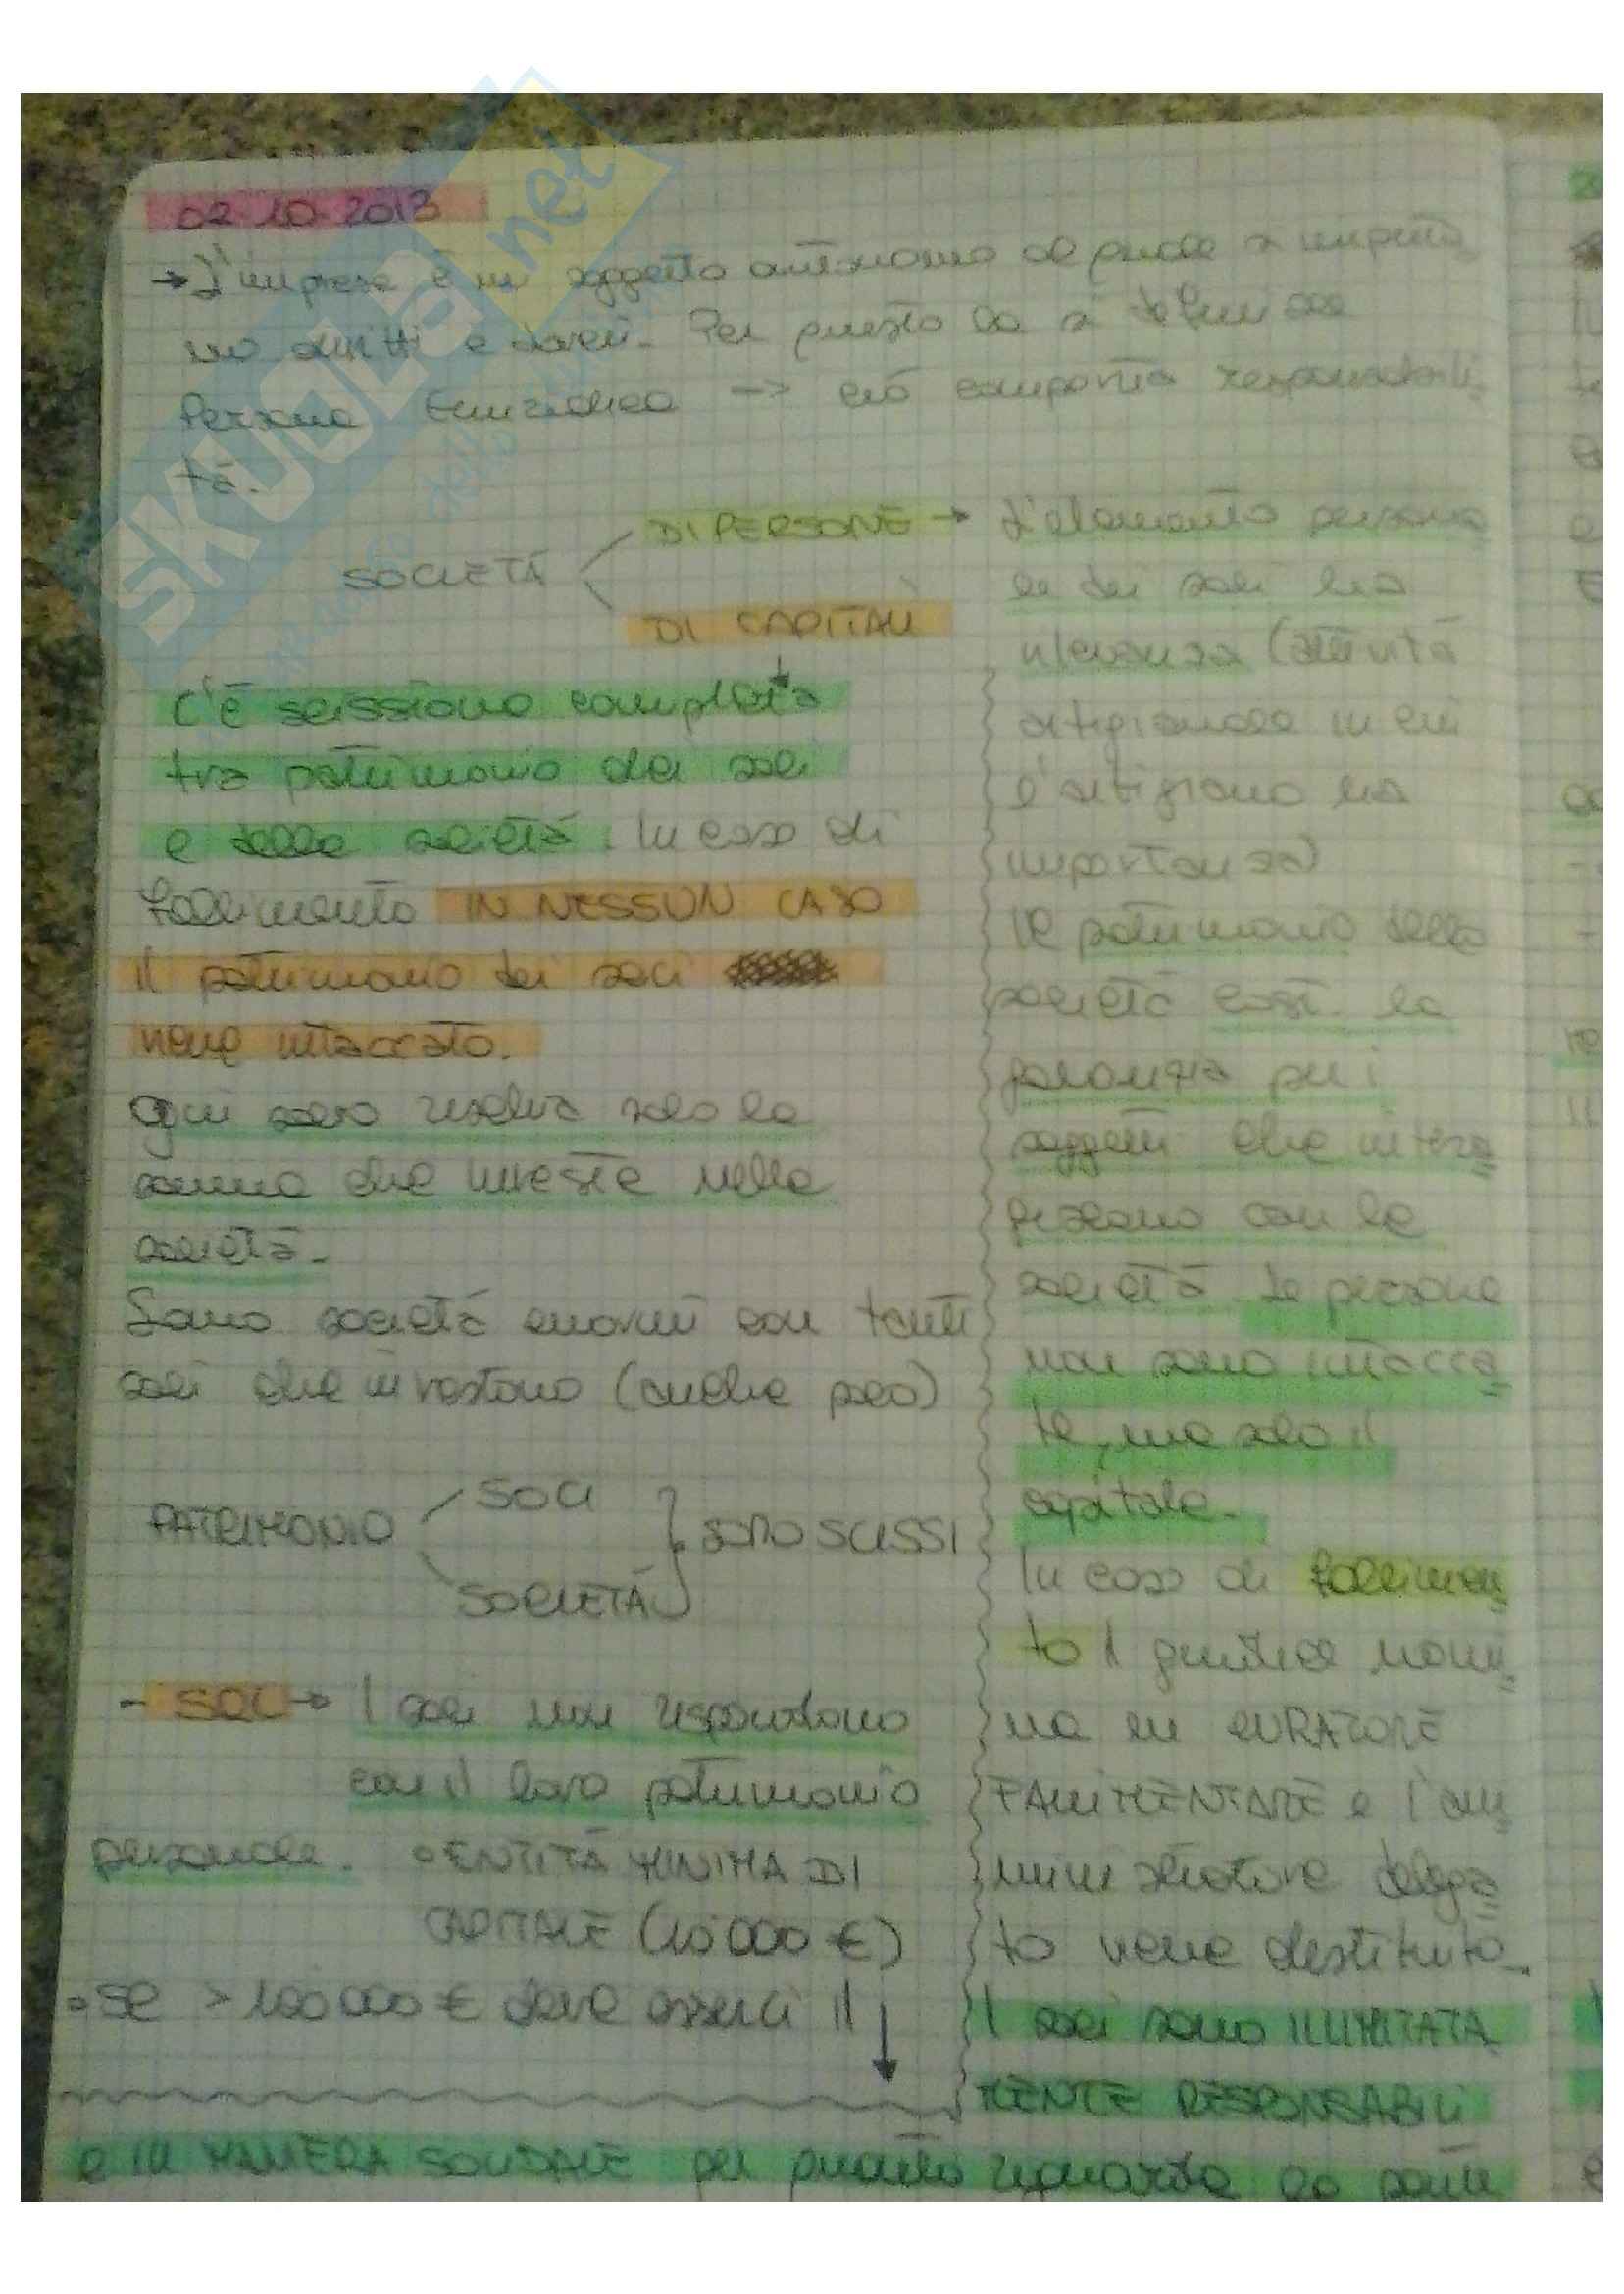 02-10-2013
→ L'impresa è un soggetto autonomo al quale si imputa
no diritti e doveri. Per questo la si definisce
Persona Giuridica –> ciò comporta responsabili
tà.
SOCIETÀ
DI PERSONE →
DI CAPITALI
C'è scissione completa
tra patrimonio dei soci
e della società. In caso di
fallimento IN NESSUN CASO
il patrimonio dei soci
viene intaccato.
Ogni socio rischia solo la
somma che investe nella
società.
Sono società enormi con tanti
soci che investono (anche poco)
PATRIMONIO
SOCI
SOCIETÀ
SONO SCISSI
- SOCI → I soci non rispondono
con il loro patrimonio
personale.
◦ ENTITÀ MINIMA DI
CAPITALE (10 000 €)
◦ Se > 100 000 € deve esserci il ↓
L'elemento persona
le dei soci ha
rilevanza (attività
artigianale in cui
l'artigiano ha
importanza)
Il patrimonio della
società cost. la
garanzia per i
soggetti che intera
giscono con la
società. Le persone
non sono intacca
te, ma solo il
capitale.
In caso di fallimen
to il giudice nomi
na un CURATORE
FALLIMENTARE e l'am
ministratore delega
to viene destituito.
I soci sono ILLIMITATA
MENTE RESPONSABILI
e IN MANIERA SOLIDALE per quanto riguarda la
SKUOLA.net